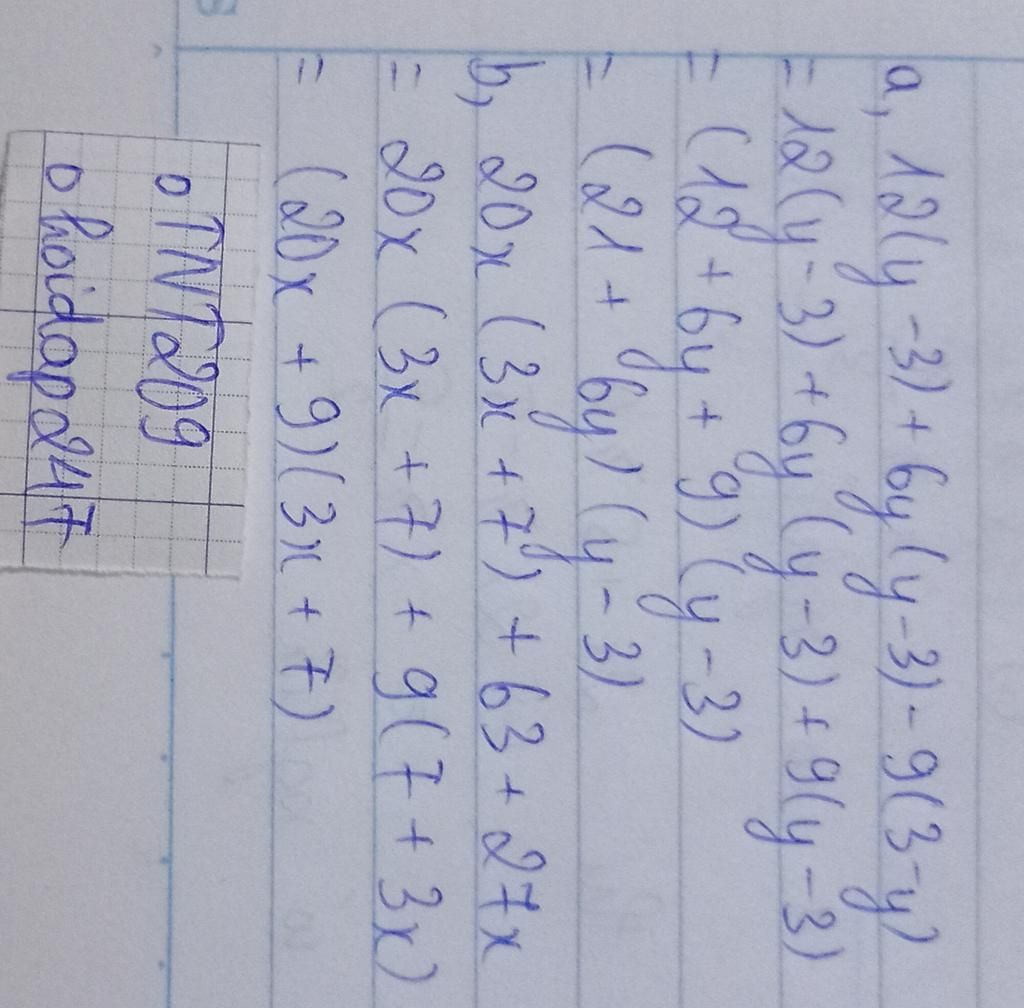 a, 12(y - 3) + 6y(y - 3) - 9(3 - y)
= 12(y - 3) + 6y(y - 3) + 9(y - 3)
= (12 + 6y + 9)(y - 3)
= (21 + 6y)(y - 3)
b, 20x (3x + 7) + 63 + 27x
= 20x (3x + 7) + 9(7 + 3x)
= (20x + 9)(3x + 7)
o TNT209
o hoidap247